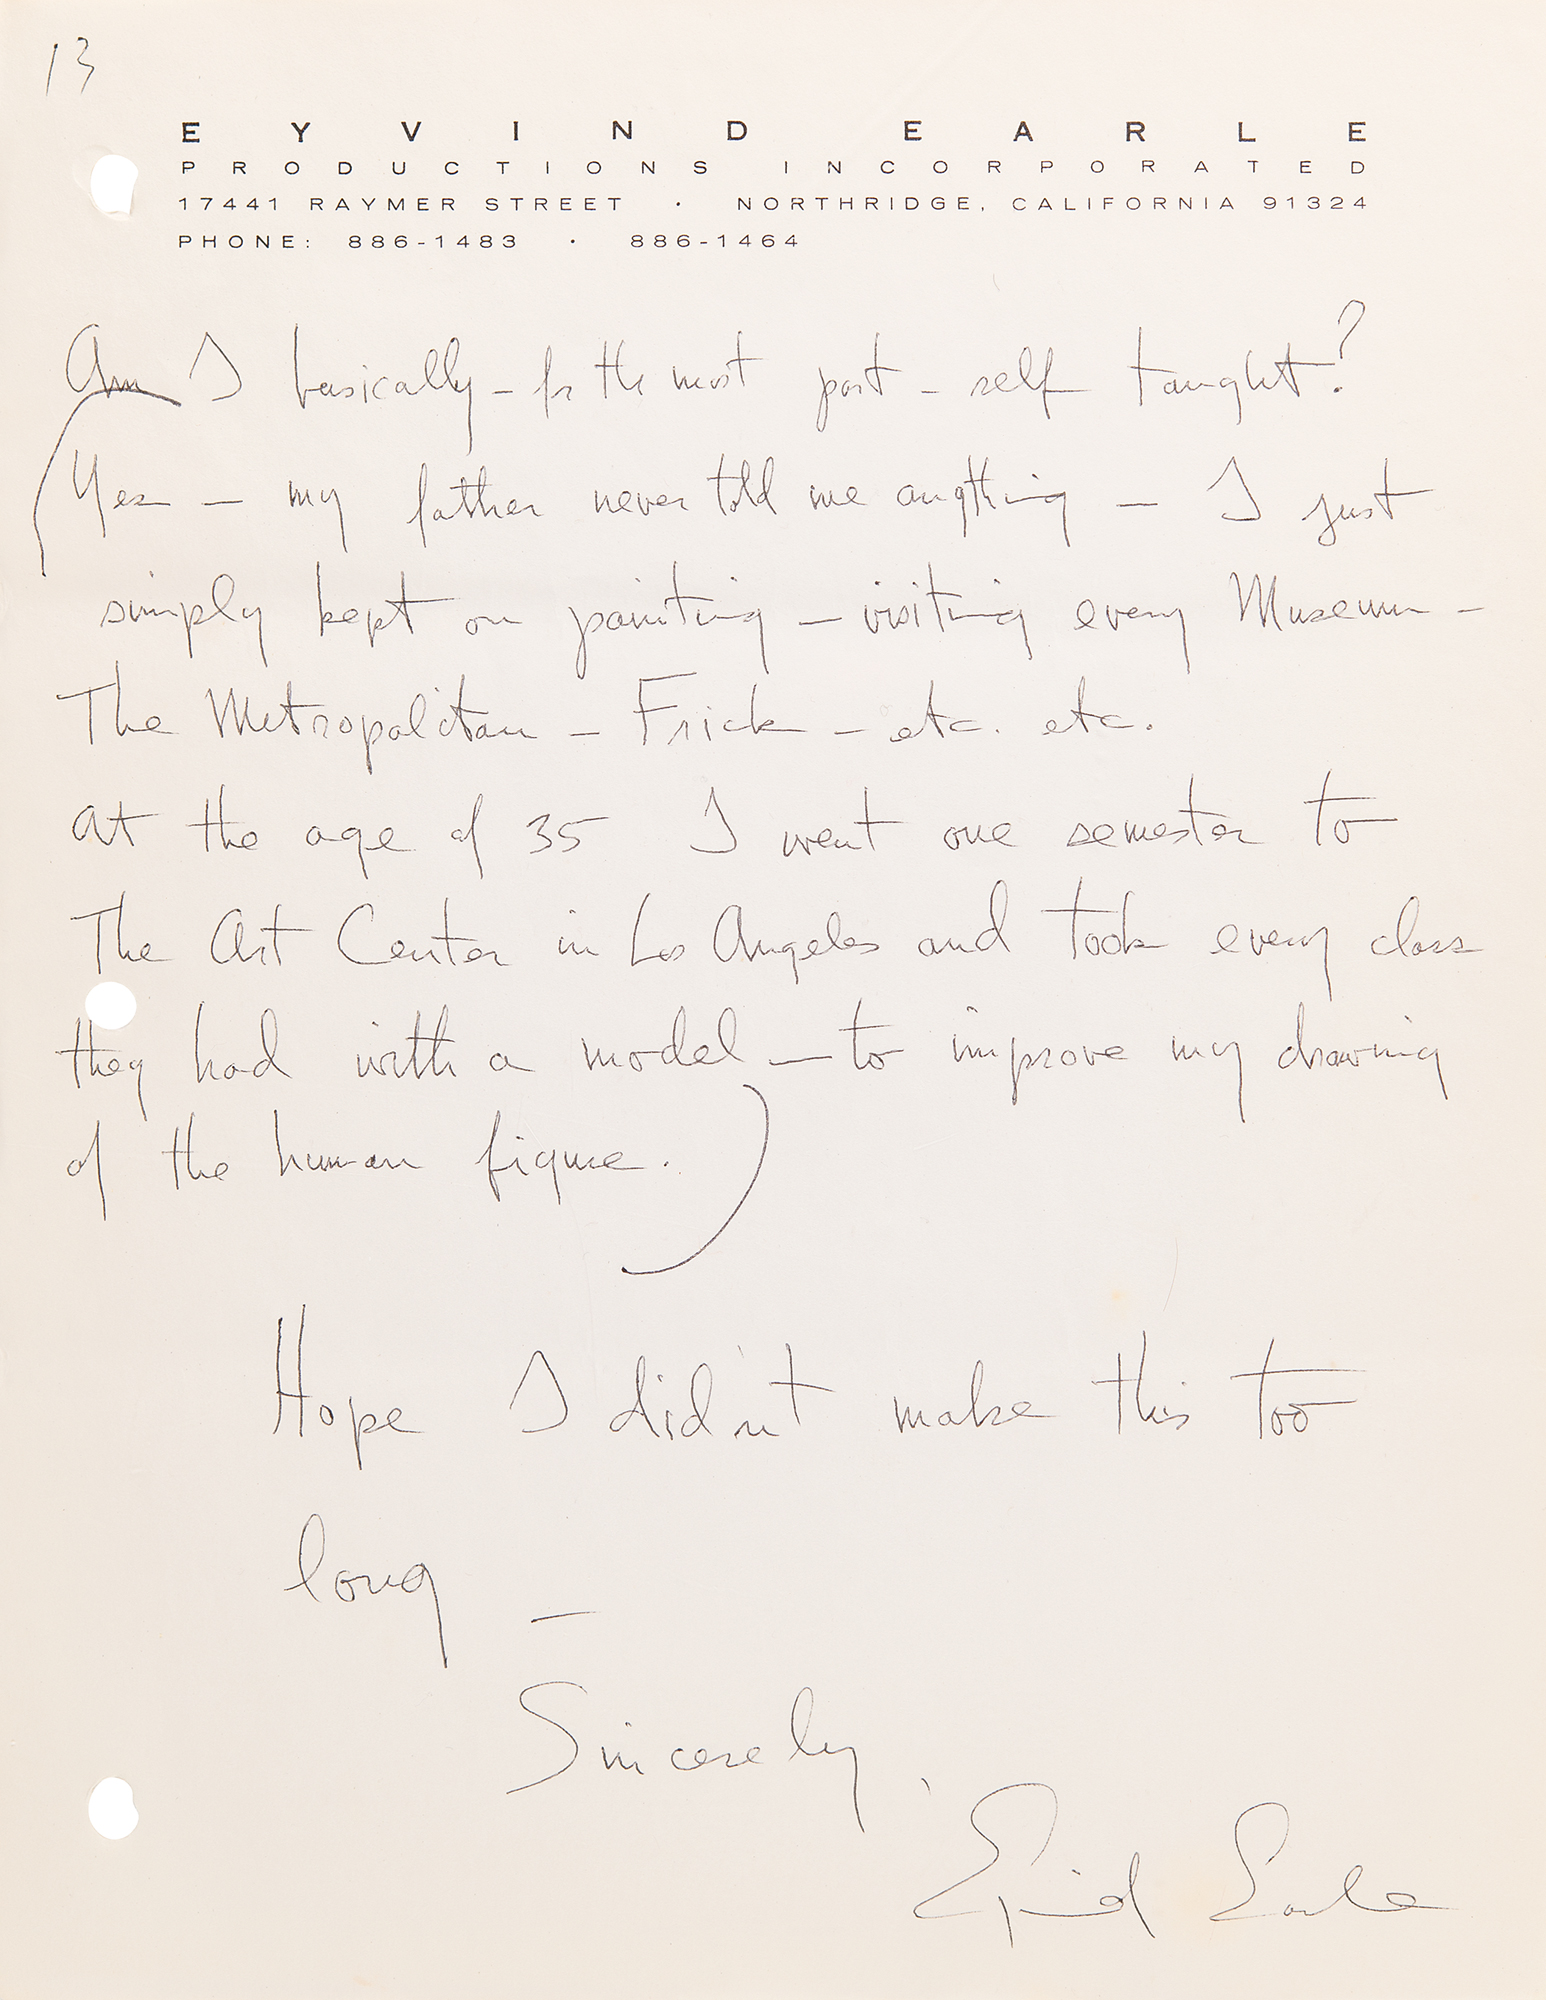 13
EYVIND EARLE
PRODUCTIONS INCORPORATED
17441 RAYMER STREET · NORTHRIDGE, CALIFORNIA 91324
PHONE: 886-1483 · 886-1464
Am I basically – for the most part – self taught?
(Yes – my father never told me anything – I just
simply kept on painting – visiting every Museum –
The Metropolitan – Frick – etc. etc.
at the age of 35 I went one semester to
The Art Center in Los Angeles and took every class
they had with a model – to improve my drawing
of the human figure.)
Hope I didn't make this too
long –
Sincerely,
Eyvind Earle